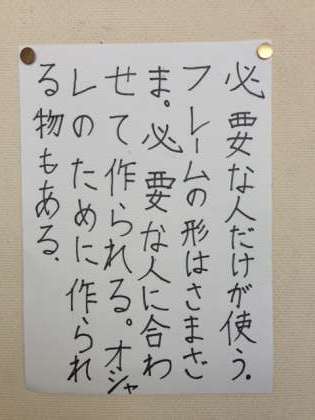 必要な人だけが使う。
フレームの形はさまざ
ま。必要な人に合わ
せて作られる。オシャ
レのために作られ
る物もある、